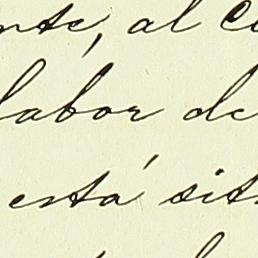 nte, al
labor de
está sit